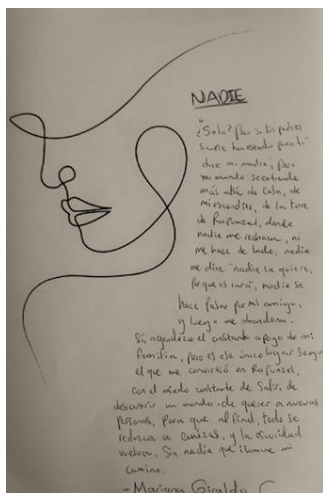 NADIE
"¿Sola? Pero si tus padres
siempre han estado para ti"
dice mi madre; pero
mi mundo se extiende
más allá de casa, de
mi escondite, de la torre
de Rapunzel, donde
nadie me rechaza, ni
me hace de lado, nadie
me dice "nadie la quiere,
porque es rara", nadie se
hace pasar por mi amiga,
y luego me abandona.
Sí, agradezco el constante apoyo de mi
familia, pero es ese único lugar seguro
el que me convirtió en Rapunzel,
con el miedo constante de salir, de
descubrir un mundo, de querer a nuevas
personas, para que al final, todo se
reduzca a cenizas, y la oscuridad
vuelva, sin nadie que ilumine mi
camino.
- Mariana Giraldo C